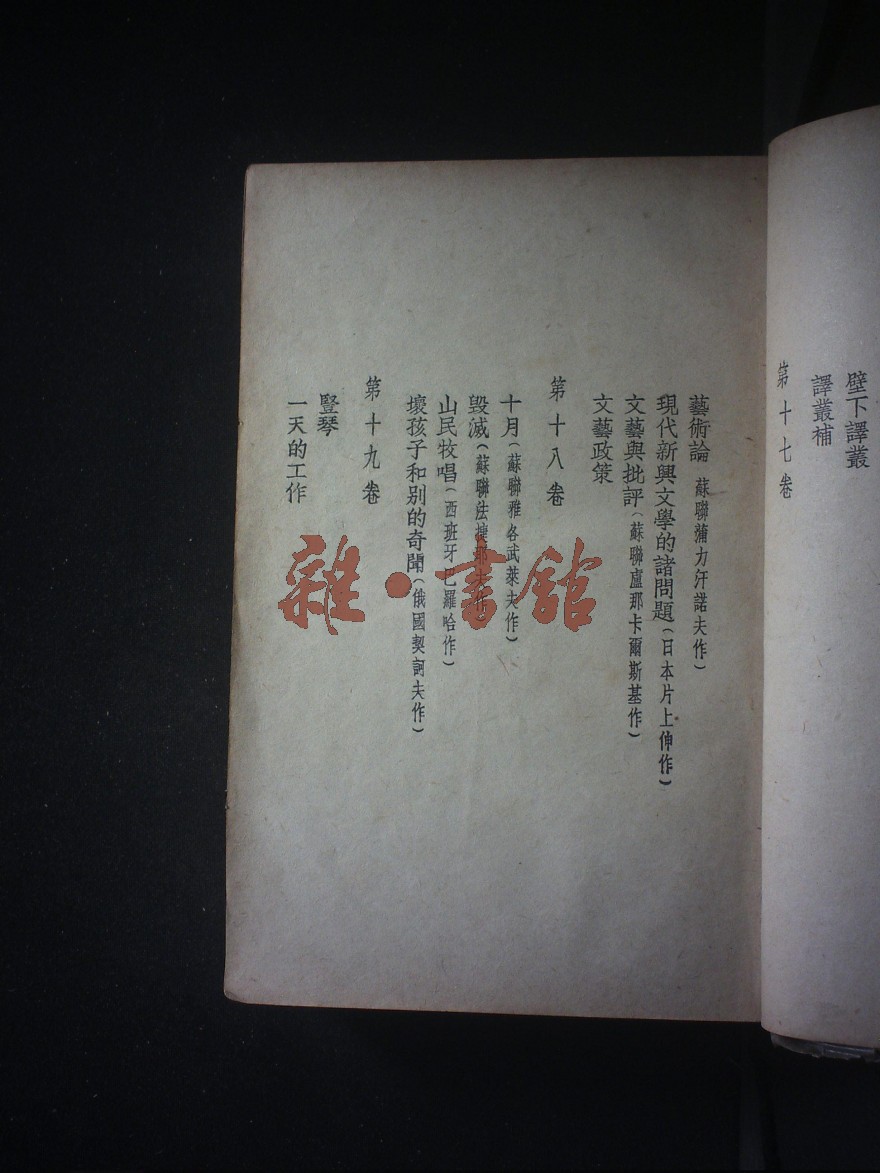 壁下譯叢
譯叢補
第十七卷
藝術論 蘇聯蒲力汗諾夫作)
現代新興文學的諸問題(日本片上伸作)
文藝與批評(蘇聯盧那卡爾斯基作)
文藝政策
第十八卷
十月(蘇聯雅各武萊夫作)
毀滅(蘇聯法捷耶夫作)
山民牧唱(西班牙巴羅哈作)
壞孩子和別的奇聞(俄國契訶夫作)
第十九卷
豎琴
一天的工作
雜·書館